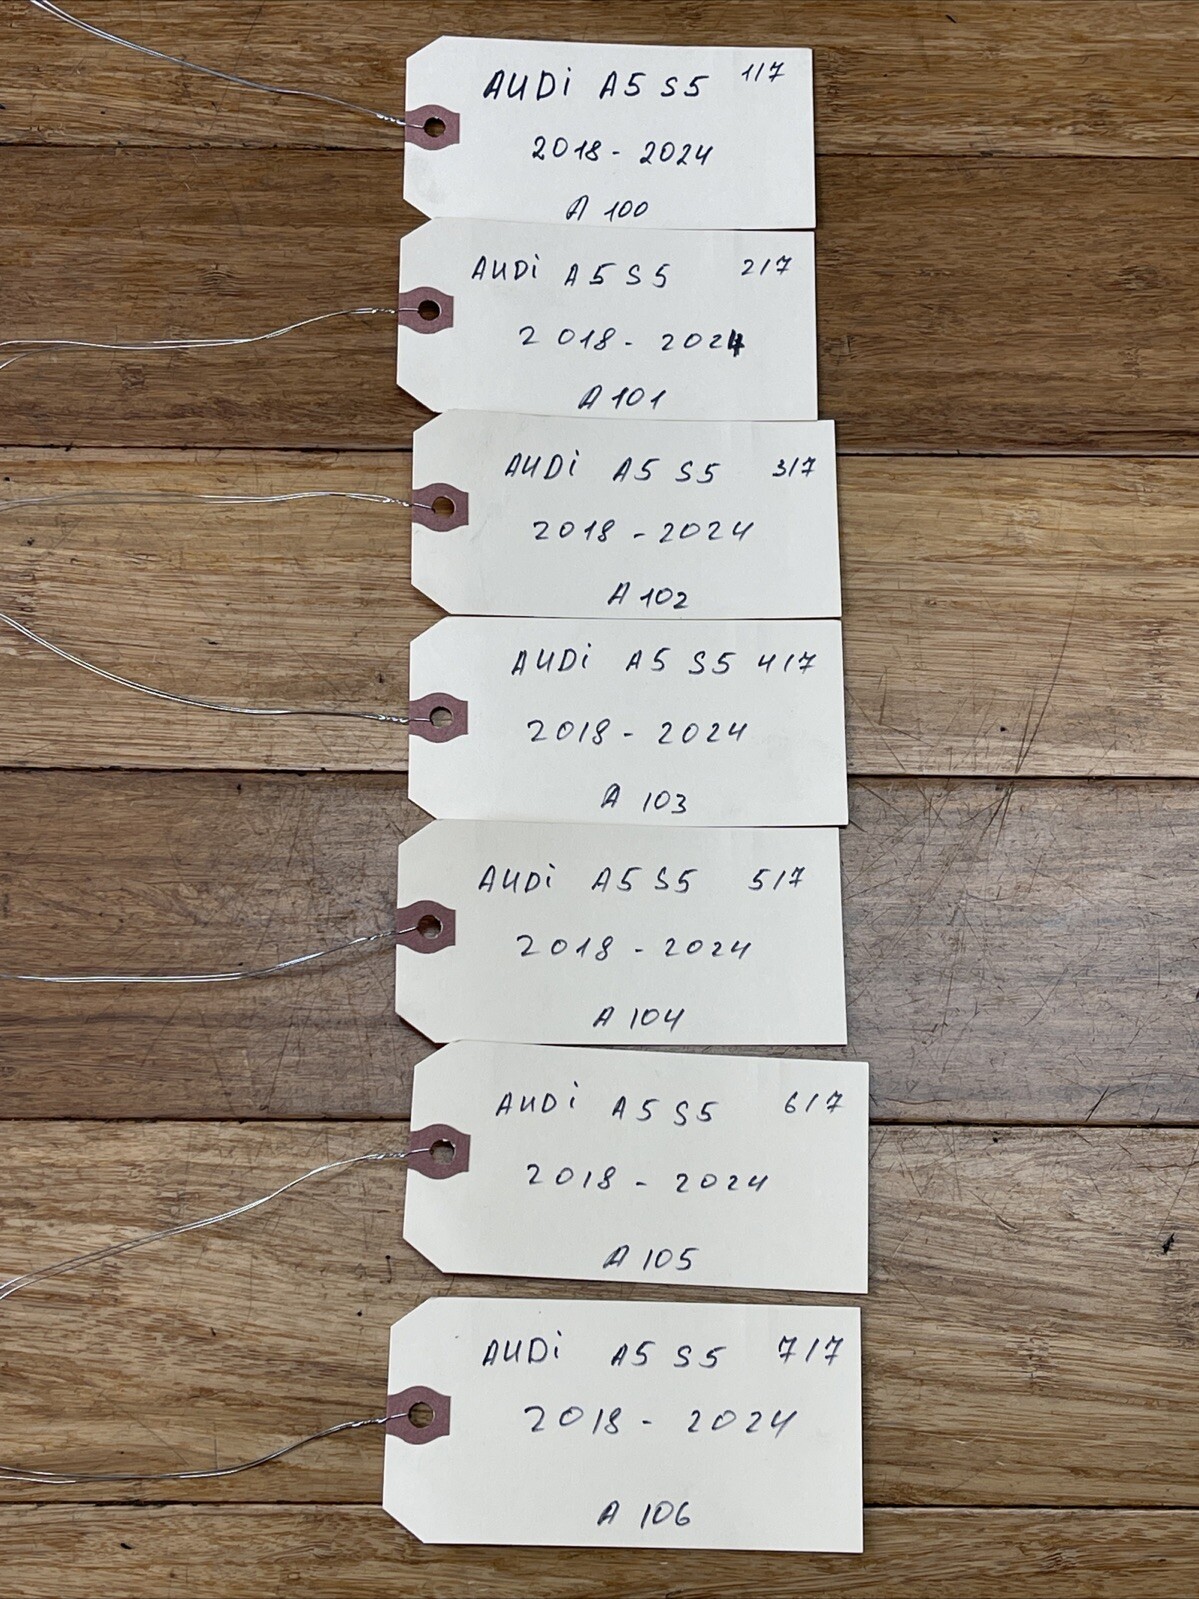 AUDi A5 S5 1/7
2018 - 2024
A 100
AUDi A5 S5 2/7
2018 - 2024
A 101
AUDi A5 S5 3/7
2018 - 2024
A 102
AUDi A5 S5 4/7
2018 - 2024
A 103
AUDi A5 S5 5/7
2018 - 2024
A 104
AUDi A5 S5 6/7
2018 - 2024
A 105
AUDi A5 S5 7/7
2018 - 2024
A 106